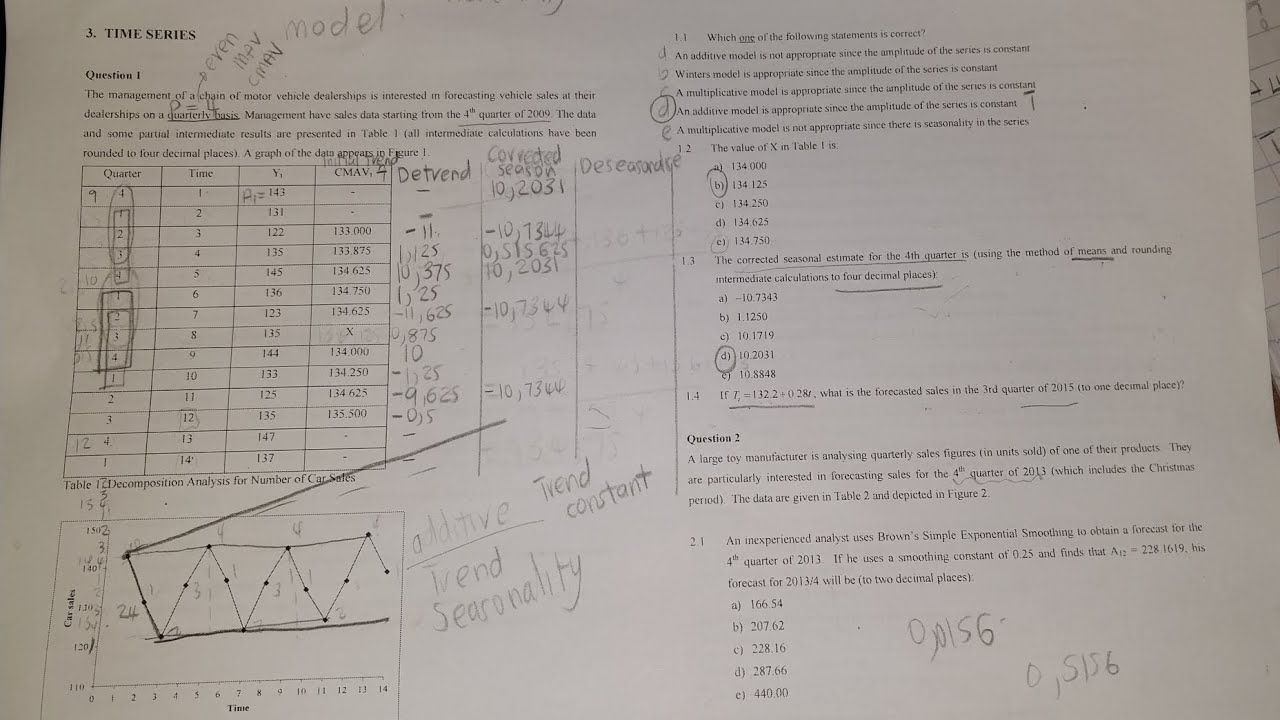 model.
3. TIME SERIES
even
MAV
CMAV
Question 1
P = 4
The management of a chain of motor vehicle dealerships is interested in forecasting vehicle sales at their
dealerships on a quarterly basis. Management have sales data starting from the 4th quarter of 2009. The data
and some partial intermediate results are presented in Table 1 (all intermediate calculations have been
rounded to four decimal places). A graph of the data appears in Figure 1.
Initial Trend
Quarter Time Yt CMAVt Detrend Corrected season Deseasondise
9 4 1 A1= 143 - - 10,2031
1 2 131 - -
2 3 122 133.000 -11 -10,7344
3 4 135 133.875 1,125 0,515625
10 4 5 145 134.625 10,375 10,2031
1 6 136 134.750 1,25
2 7 123 134.625 -11,625 -10,7344
3 8 135 X 0,875
4 9 144 134.000 10
1 10 133 134.250 -1,25
2 11 125 134.625 -9,625 =10,7344
3 12 135 135.500 -0,5
12 4. 13 147 - -
1 14 137 - -
Table 1: Decomposition Analysis for Number of Car Sales
additive
Trend
constant
Trend
Seasonality
150
140
130
120
110
24
Car sales
0 1 2 3 4 5 6 7 8 9 10 11 12 13 14
Time
1.1 Which one of the following statements is correct?
a An additive model is not appropriate since the amplitude of the series is constant
b Winters model is appropriate since the amplitude of the series is constant
c A multiplicative model is appropriate since the amplitude of the series is constant
d An additive model is appropriate since the amplitude of the series is constant T
e A multiplicative model is not appropriate since there is seasonality in the series
1.2 The value of X in Table 1 is:
a) 134.000
b) 134.125
c) 134.250
d) 134.625
e) 134.750
1.3 The corrected seasonal estimate for the 4th quarter is (using the method of means and rounding
intermediate calculations to four decimal places):
a) −10.7343
b) 1.1250
c) 10.1719
d) 10.2031
e) 10.8848
1.4 If Tt = 132.2 + 0.28t, what is the forecasted sales in the 3rd quarter of 2015 (to one decimal place)?
Question 2
A large toy manufacturer is analysing quarterly sales figures (in units sold) of one of their products. They
are particularly interested in forecasting sales for the 4th quarter of 2013 (which includes the Christmas
period). The data are given in Table 2 and depicted in Figure 2.
2.1 An inexperienced analyst uses Brown's Simple Exponential Smoothing to obtain a forecast for the
4th quarter of 2013. If he uses a smoothing constant of 0.25 and finds that A12 = 228.1619, his
forecast for 2013/4 will be (to two decimal places):
a) 166.54
b) 207.62
c) 228.16
d) 287.66
e) 440.00
0,0156
0,5156